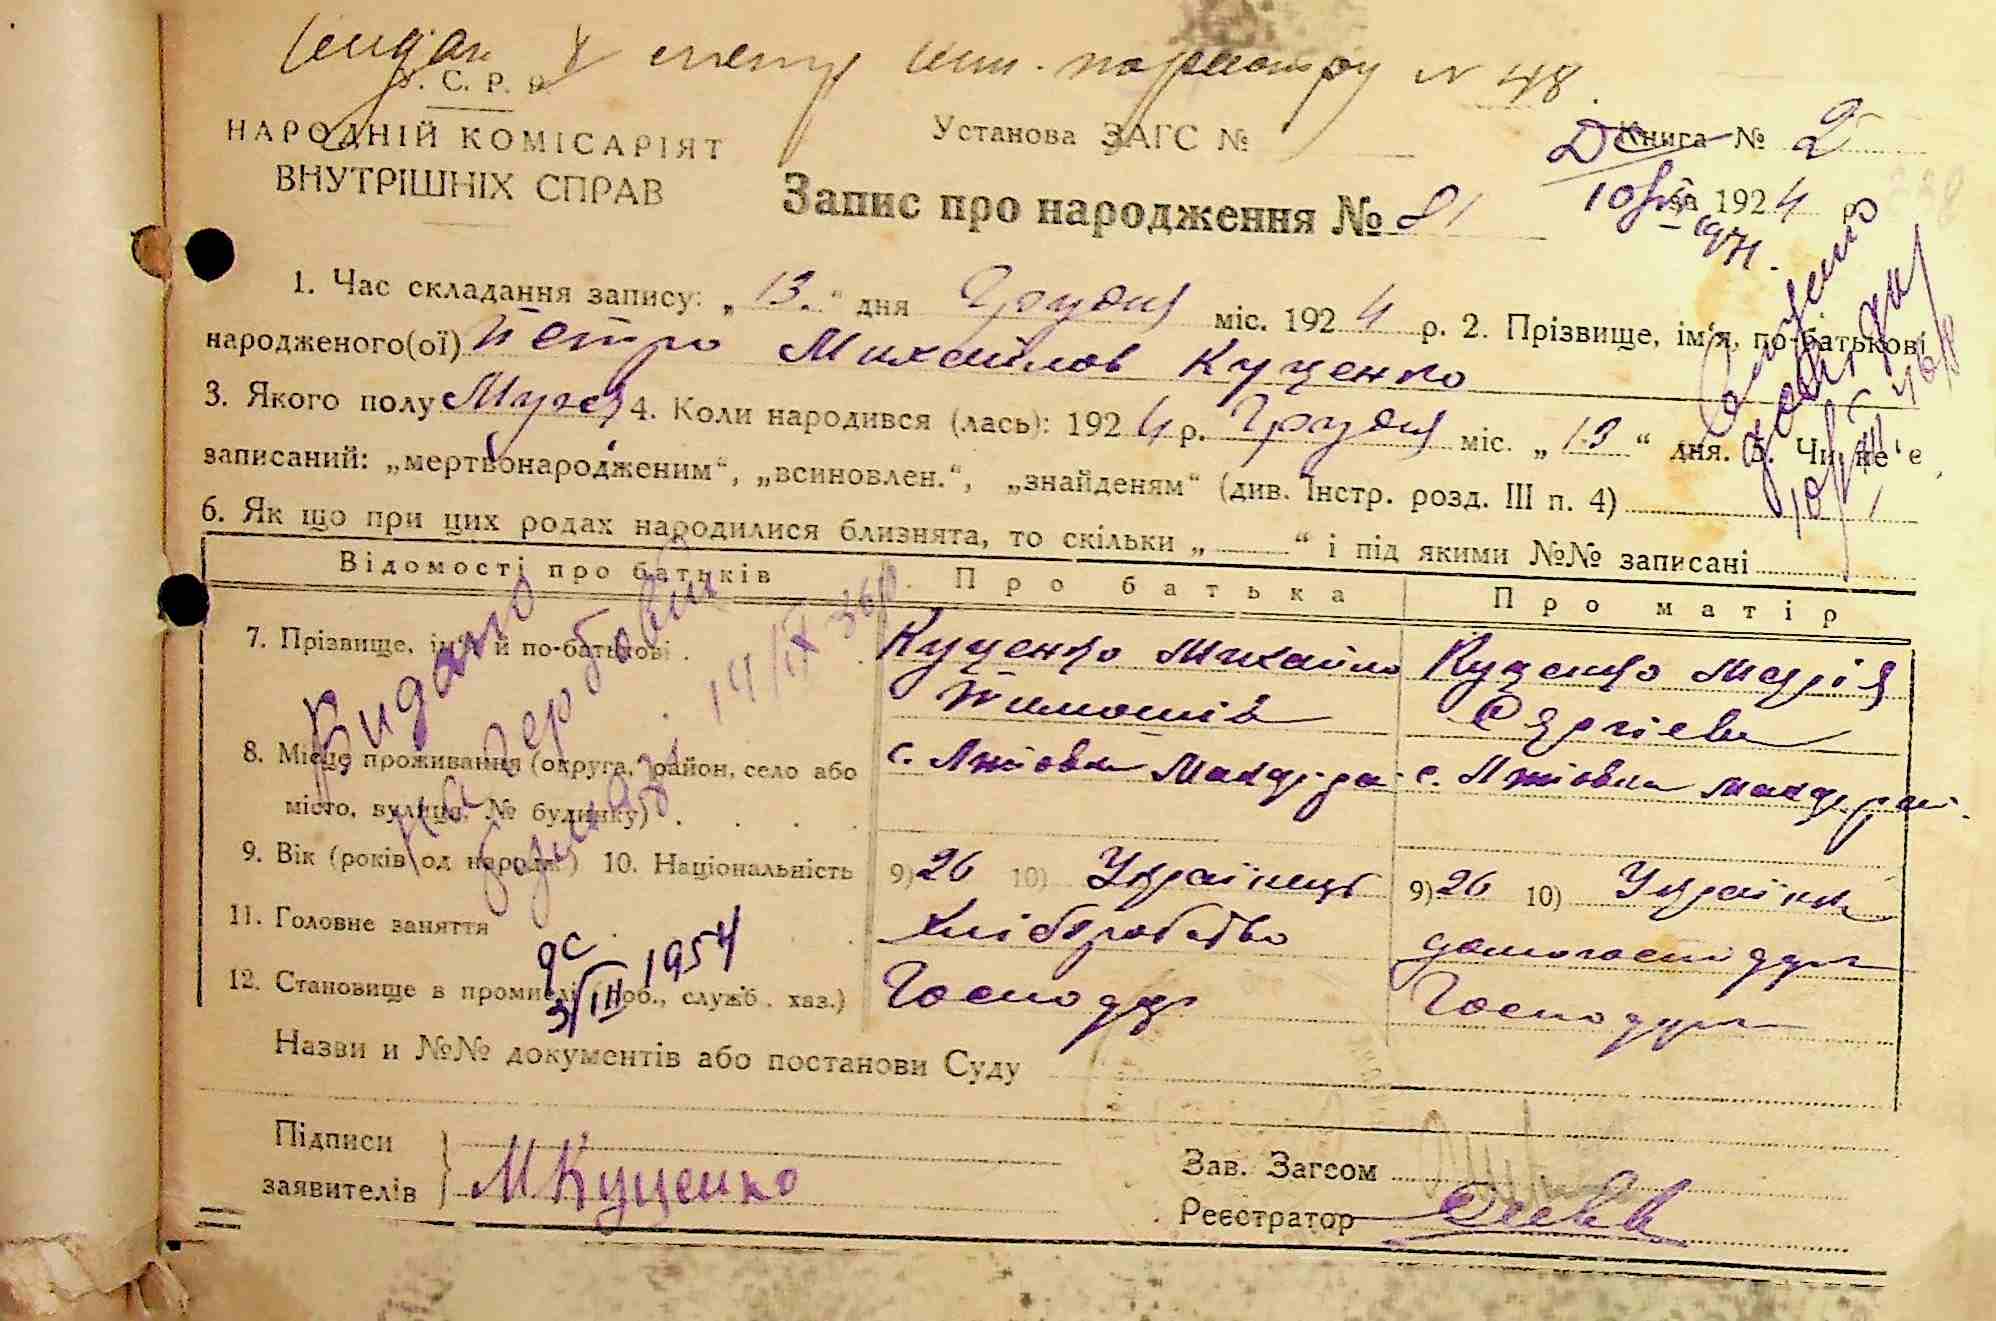 У. С. Р. Р.
НАРОДНІЙ КОМІСАРІЯТ
ВНУТРІШНІХ СПРАВ
№ 48.
Установа ЗАГС №
Книга № 2
за 1924 р.
Запис про народження № 81
1. Час складання запису: „13.“ дня Грудня міс. 1924 р. 2. Прізвище, ім'я, по-батькові
народженого(ої) Петро Михайлов Куценко
3. Якого полу Мужс 4. Коли народився (лась): 1924 р. Грудня міс. „13“ дня. 5. Чи не є
записаний: „мертвонародженим“, „всиновлен.“, „знайденям“ (див. Інстр. розд. III п. 4)
6. Як що при цих родах народилися близнята, то скільки „ “ і під якими №№ записані
Відомості про батьків Про батька Про матір
7. Прізвище, ім'я й по-батькові . Куценко Михайло Куценко Марія
Тимошів Сергієва
8. Місце проживання (округа, район, село або
місто, вулиця, № будинку)
9. Вік (років од народж.) 10. Національність 9) 26 10) Українець 9) 26 10) Українка
11. Головне заняття Хліборобство домогосподарка
12. Становище в промислі (роб., служб. хаз.) Господар Господарка
Видано
14/IX 36р.
3/III 1954
Назви и №№ документів або постанови Суду
Підписи
заявителів М Куценко
Зав. Загсом
Реєстратор